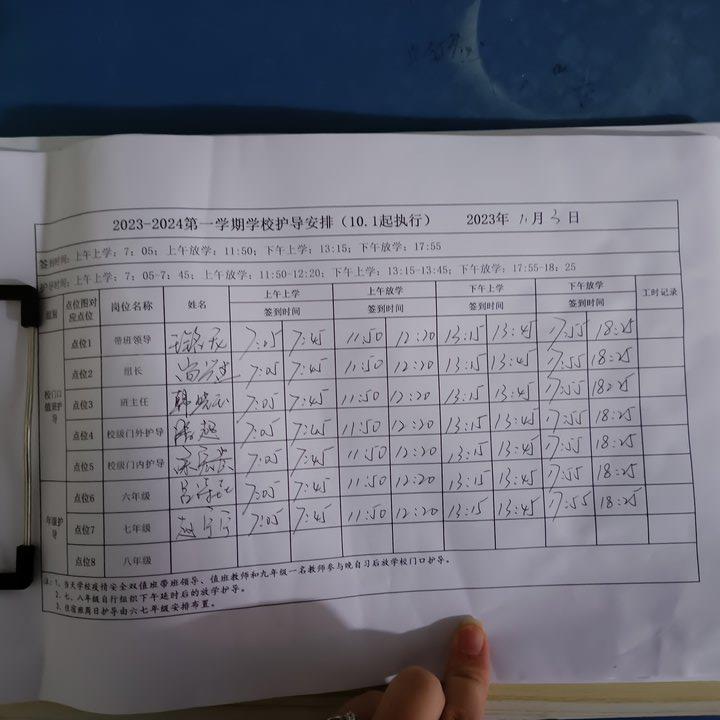 2023-2024第一学期学校护导安排（10.1起执行） 2023年 11月 3日
签到时间：上午上学：7：05；上午放学：11:50；下午上学：13:15；下午放学：17:55
护导时间：上午上学：7：05-7：45；上午放学：11:50-12:20；下午上学：13:15-13:45；下午放学：17:55-18：25
组别 点位图对应点位 岗位名称 姓名 上午上学 上午放学 下午上学 下午放学 工时记录
签到时间 签到时间 签到时间 签到时间
校门口值班护导
点位1 带班领导 7:05 7:45 11:50 12:20 13:15 13:45 17:55 18:25
点位2 组长 7:05 7:45 11:50 12:20 13:15 13:45 17:55 18:25
点位3 班主任 韩晓 7:05 7:45 11:50 12:20 13:15 13:45 17:55 18:25
点位4 校级门外护导 超 7:05 7:45 11:50 12:20 13:15 13:45 17:55 18:25
点位5 校级门内护导 7:05 7:45 11:50 12:20 13:15 13:45 17:55 18:25
年级护导
点位6 六年级 吕 7:05 7:45 11:50 12:20 13:15 13:45 17:55 18:25
点位7 七年级 赵 7:05 7:45 11:50 12:20 13:15 13:45 17:55 18:25
点位8 八年级
注：1、当天学校疫情安全双值班带班领导、值班教师和九年级一名教师参与晚自习后放学校门口护导。
2、七、八年级自行组织下午延时后的放学护导。
3、住宿班周日护导由六七年级安排布置。